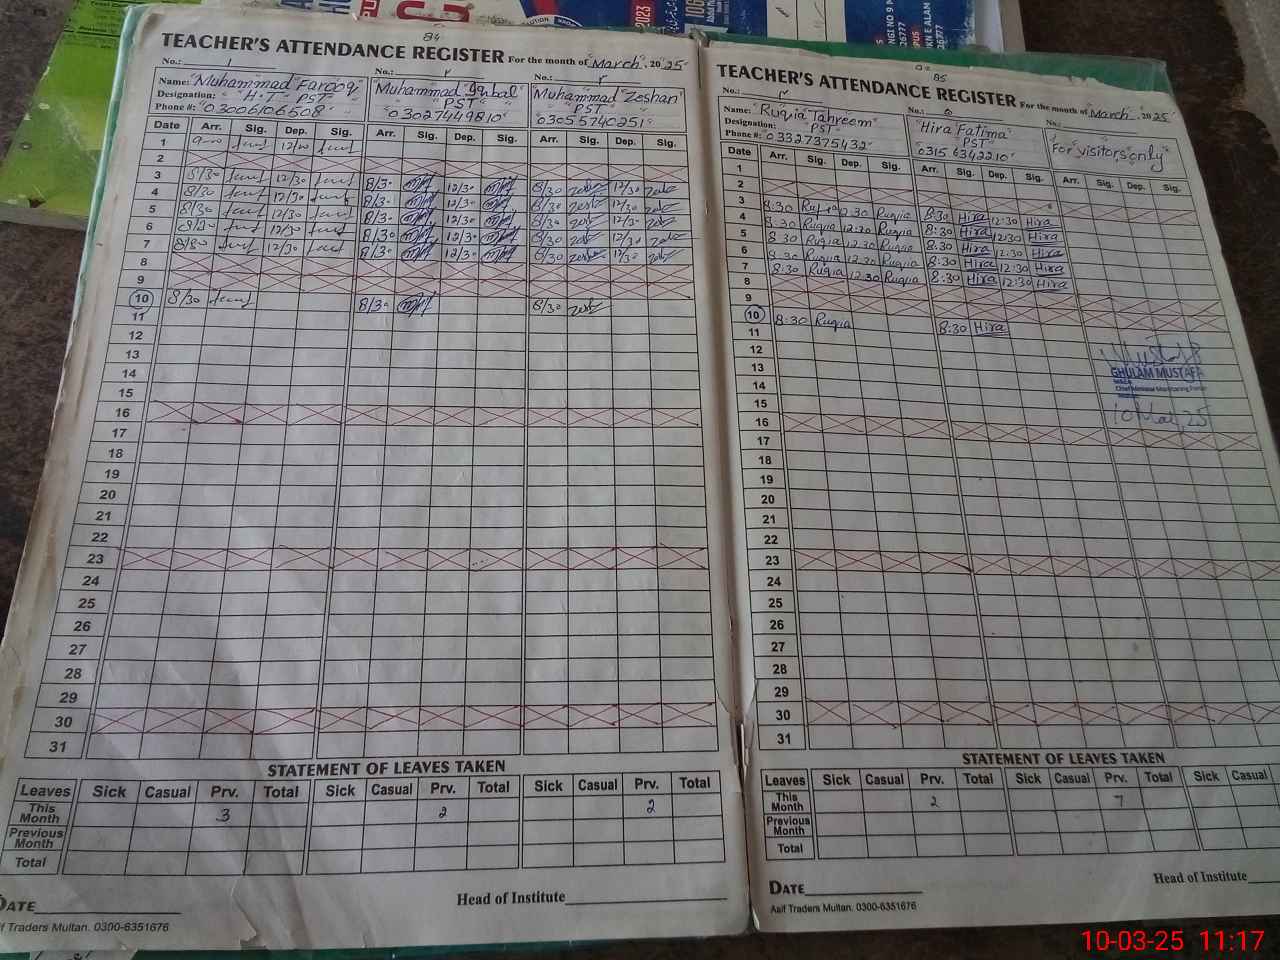 84
TEACHER'S ATTENDANCE REGISTER For the month of "March". 2025
No.: 1 No.: ۲ No.: ۳
Name: "Muhammad Farooqi" "Muhammad Iqbal" "Muhammad Zeshan"
Designation: "H.T" PST" "PST" "PST"
Phone #: "03006106508" "03027449810" "03055740251"
Date Arr. Sig. Dep. Sig. Arr. Sig. Dep. Sig. Arr. Sig. Dep. Sig.
1 9-00 12/00
2
3 8/30 12/30 8/30 12/30 8/30 12/30
4 8/30 12/30 8/30 12/30 8/30 12/30
5 8/30 12/30 8/30 12/30 8/30 12/30
6 8/30 12/30 8/30 12/30 8/30 12/30
7 8/30 12/30 8/30 12/30 8/30 12/30
8
9
10 8/30 8/30 8/30
11
12
13
14
15
16
17
18
19
20
21
22
23
24
25
26
27
28
29
30
31
STATEMENT OF LEAVES TAKEN
Leaves Sick Casual Prv. Total Sick Casual Prv. Total Sick Casual Prv. Total
This Month 3 2 2
Previous Month
Total
DATE
Head of Institute
Asif Traders Multan. 0300-6351676
85
TEACHER'S ATTENDANCE REGISTER For the month of "March". 2025
No.: No.: No.:
Name: "Ruqia Tahreem" "Hira Fatima" "For visitors only"
Designation: "PST" "PST"
Phone #: "03327375432" "03156342210"
Date Arr. Sig. Dep. Sig. Arr. Sig. Dep. Sig. Arr. Sig. Dep. Sig.
1
2
3 8:30 Ruqia 12:30 Ruqia 8:30 Hira 12:30 Hira
4 8:30 Ruqia 12:30 Ruqia 8:30 Hira 12:30 Hira
5 8:30 Ruqia 12:30 Ruqia 8:30 Hira 12:30 Hira
6 8:30 Ruqia 12:30 Ruqia 8:30 Hira 12:30 Hira
7 8:30 Ruqia 12:30 Ruqia 8:30 Hira 12:30 Hira
8
9
10 8:30 Ruqia 8:30 Hira
11
12
13
GHULAM MUSTAFA
14
Chief Minister Monitoring Force
15
10 Mar, 25
16
17
18
19
20
21
22
23
24
25
26
27
28
29
30
31
STATEMENT OF LEAVES TAKEN
Leaves Sick Casual Prv. Total Sick Casual Prv. Total Sick Casual
This Month 2 7
Previous Month
Total
DATE
Head of Institute
Asif Traders Multan. 0300-6351676
10-03-25 11:17